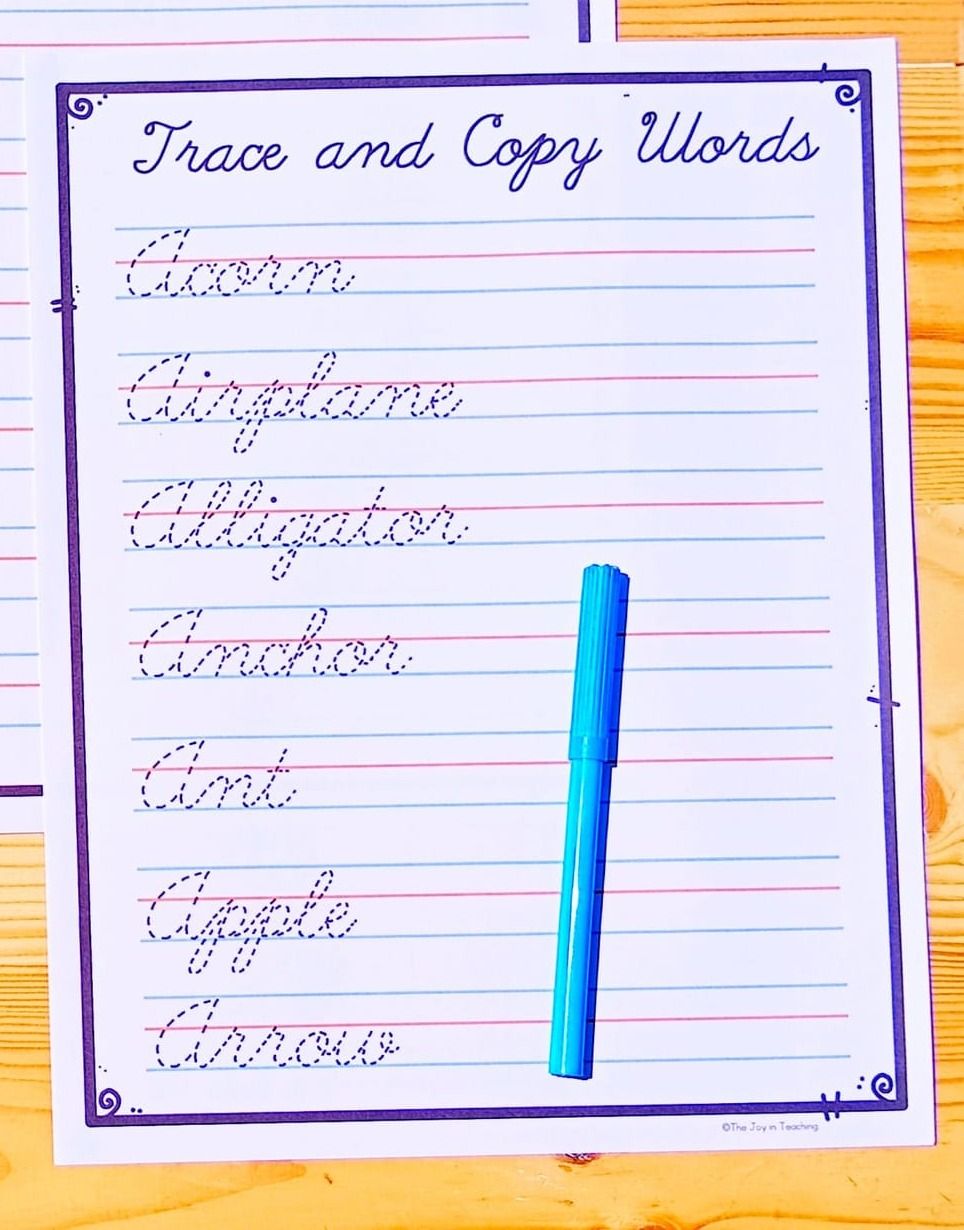 Trace and Copy Words
Acorn
Airplane
Alligator
Anchor
Ant
Apple
Arrow
©The Joy in Teaching